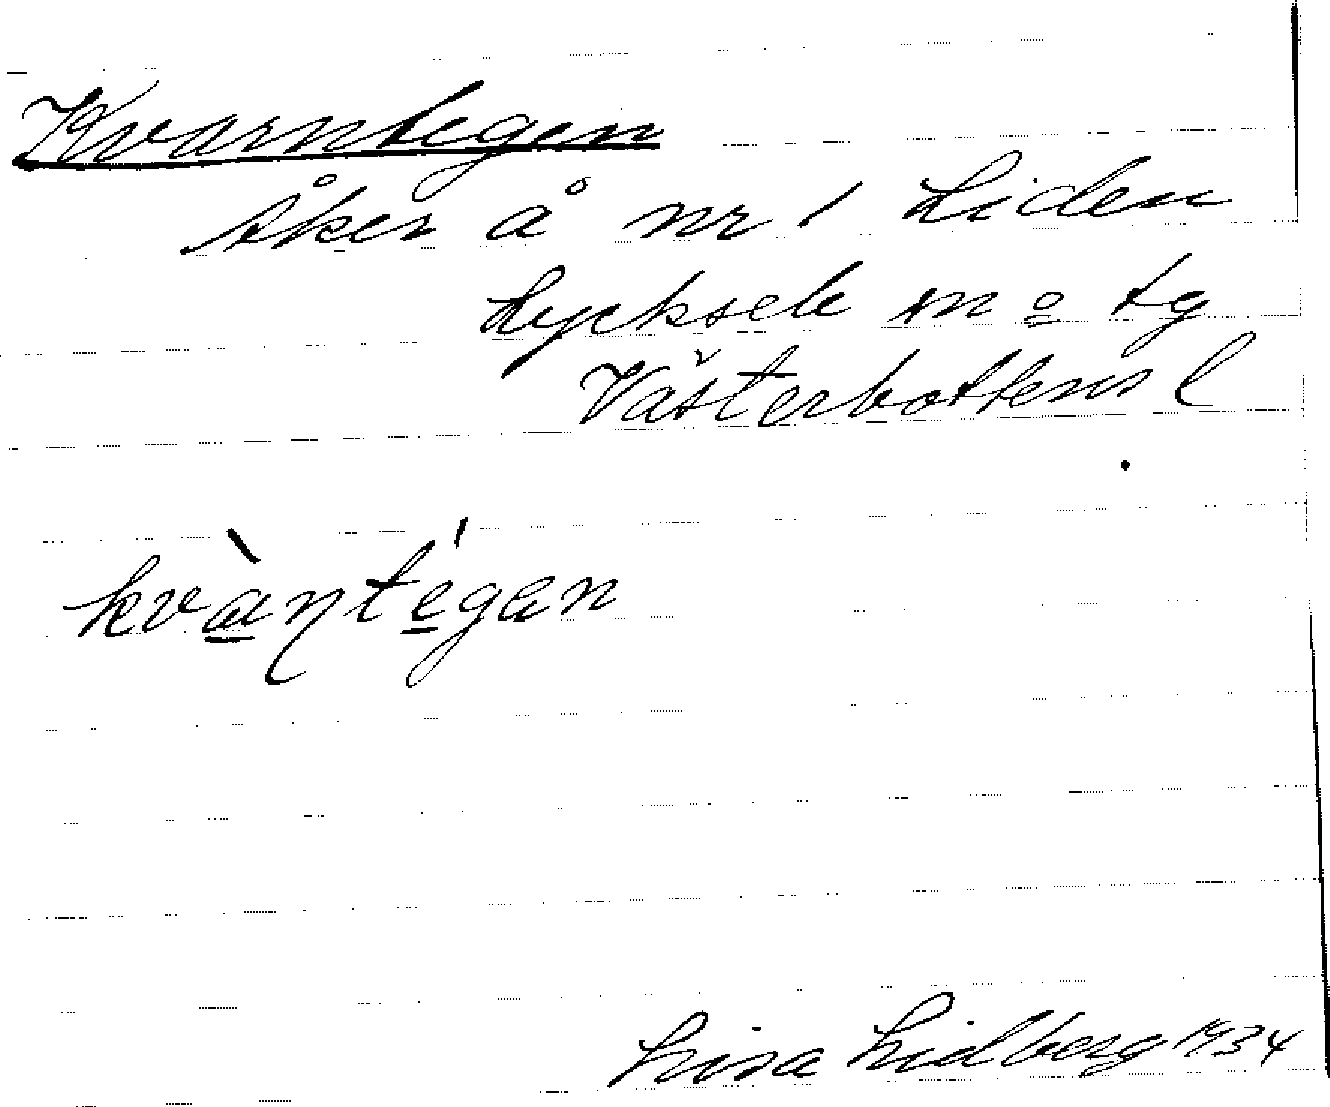 Kvarntegen
åker å nr 1 Liden
Lycksele m o tg
Västerbottens l
kvàɳtégen
Lisa Lidberg 1934